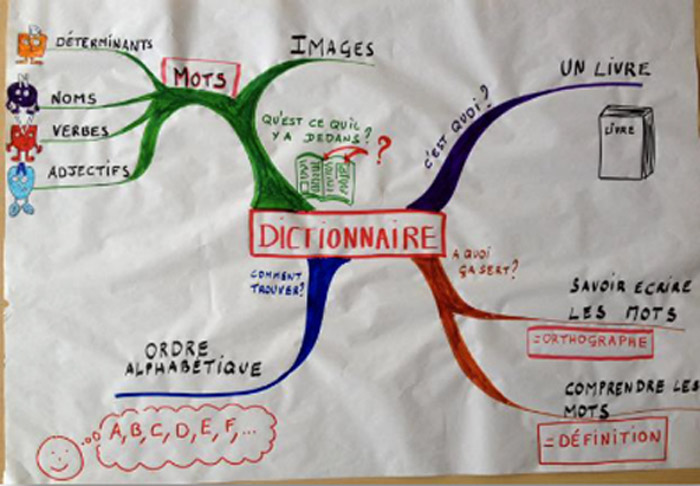 DÉTERMINANTS
NOMS
VERBES
ADJECTIFS
MOTS
IMAGES
QU'EST CE QU'IL
Y A DEDANS?
?
C'EST QUOI?
UN LIVRE
LIVRE
DICTIONNAIRE
COMMENT
TROUVER?
ORDRE
ALPHABÉTIQUE
A, B, C, D, E, F, ...
A QUOI
ÇA SERT?
SAVOIR ECRIRE
LES MOTS
=ORTHOGRAPHE
COMPRENDRE LES
MOTS
=DÉFINITION